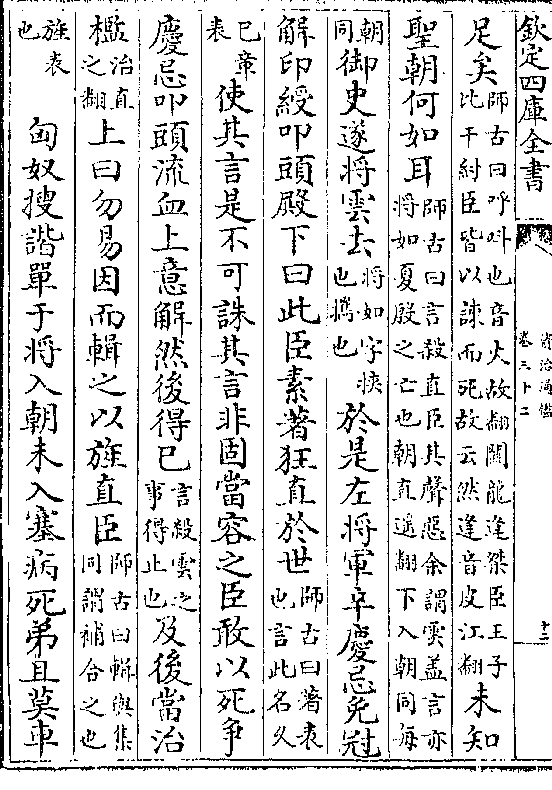 欽定四庫全書
資治通鑑
卷三十二
十三
足矣師古曰呼叫也音火故翻關龍逢桀臣王子比干紂臣皆以諫而死故云然逢音皮江翻未知
聖朝何如耳師古曰言殺直臣其聲惡余謂雲盖言亦將如夏殷之亡也朝直遥翻下入朝同每
朝同御史遂將雲去將如字挾也攜也於是左將軍辛慶忌免冠
解印綬叩頭殿下曰此臣素著狂直於世師古曰著表也言此名久
已章表使其言是不可誅其言非固當容之臣敢以死争
慶忌叩頭流血上意解然後得已言殺雲之事得止也及後當治
檻治直之翻上曰勿易因而輯之以旌直臣師古曰輯與集同謂補合之也
旌表也匈奴搜諧單于將入朝未入塞病死弟且莫車